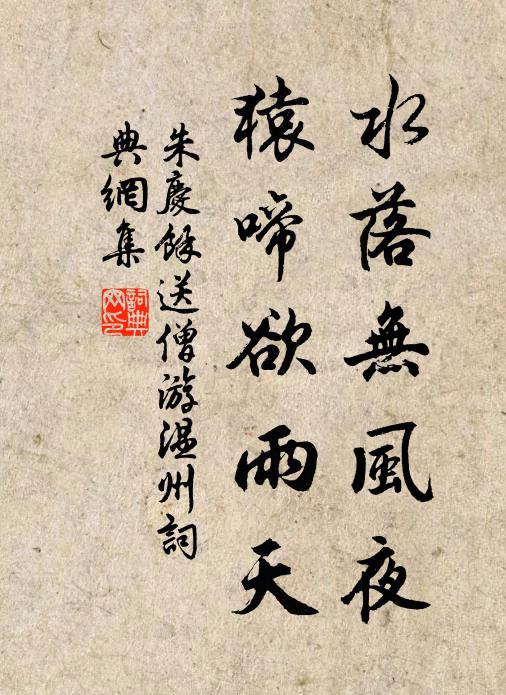 水落無風夜
猿啼欲雨天
朱慶餘送僧游温州詞
典網集
詞典
网印